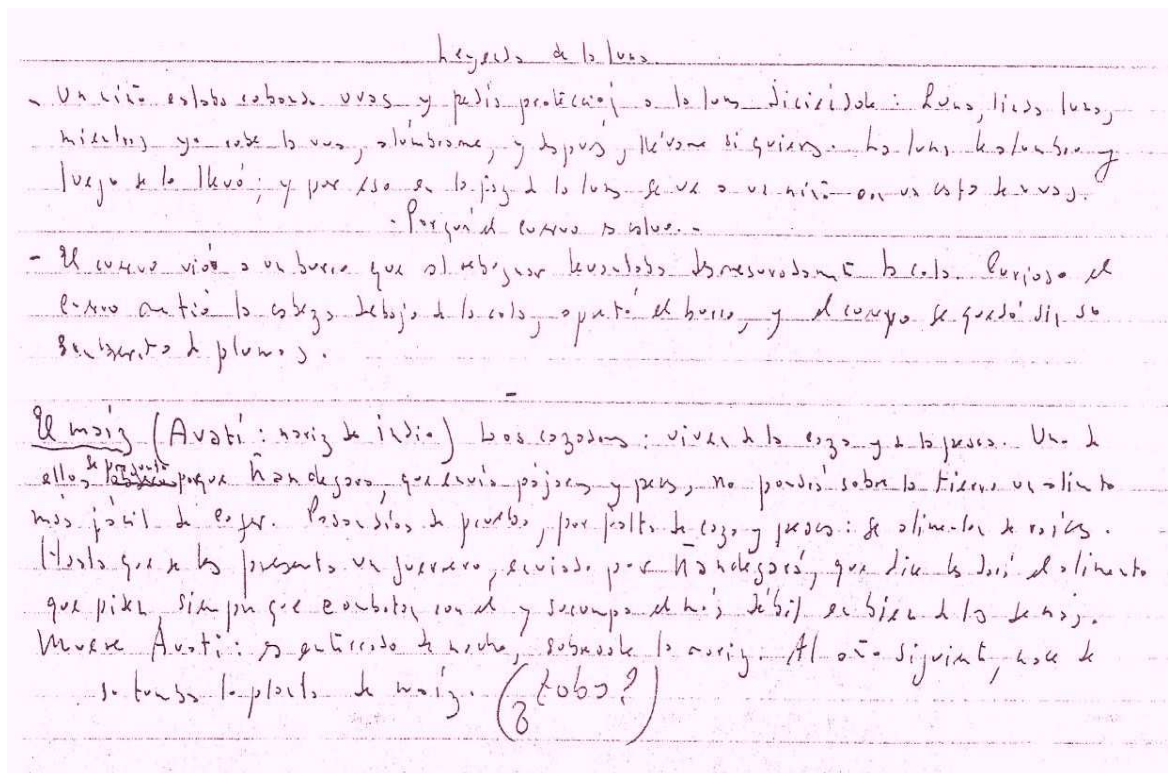 Leyenda de la luna.
- Un niño estaba robando uvas y pedía protección a la luna diciéndole: Luna, linda luna,
mientras yo robe la uva, alúmbrame, y después, llévame si quieres. La luna le alumbró y
luego se lo llevó; y por eso en la faz de la luna se ve a un niño con un cesto de uvas.
- Porqué el cuervo es calvo. -
- El cuervo vió a un burro que al rebuznar levantaba desmesuradamente la cola. Curioso el
cuervo metió la cabeza debajo de la cola, apretó el burro, y el cuervo se quedó sin su
sombrerito de plumas.
El maíz (Avatí: nariz de indio) Los cazadores: viven de la caza y de la pesca. Uno de
ellos se preguntó porque Ñandeyara, que envía pájaros y peces, no pondría sobre la tierra un alimento
más fácil de coger. Pasan días de prueba, por falta de caza y peces: se alimentan de raíces.
Hasta que se les presenta un guerrero, enviado por Ñandeyara, que dice les dará el alimento
que piden, siempre que combatan con él y sucumpa el más débil en bien de los demás.
Muere Avatí: es enterrado de noche, sobresale la nariz. Al año siguiente, nace de
su tumba la planta de maíz. (¿tobas?)